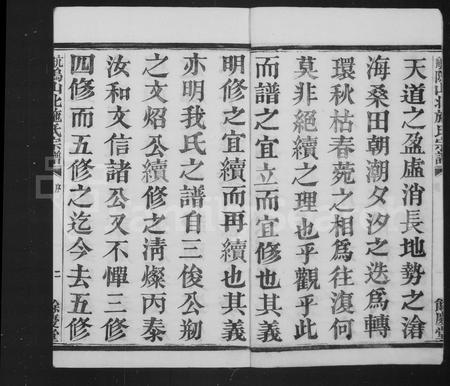 天道之盈虛消長地勢之滄
海桑田朝潮夕汐之迭爲轉
環秋枯春菀之相爲往復何
莫非絕續之理也乎觀乎此
而譜之宜立而宜修也其義
明修之宜續而再續也其義
亦明我氏之譜自三俊公剏
之文炤公續修之淸燦丙泰
汝和文信諸公又不憚三修
四修而五修之迄今去五修
航塢山北施氏宗譜
序
二
餘慶堂